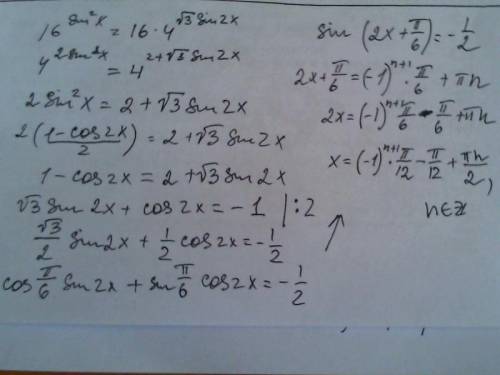 16^{sin²x} = 16 · 4^{√3 sin2x}
4^{2sin²x} = 4^{2+√3 sin2x}
2 sin²x = 2 + √3 sin2x
2(\frac{1-cos2x}{2}) = 2 + √3 sin2x
1 - cos2x = 2 + √3 sin2x
√3 sin2x + cos2x = -1 |:2
\frac{√3}{2} sin2x + \frac{1}{2} cos2x = -\frac{1}{2}
cos\frac{π}{6} sin2x + sin\frac{π}{6} cos2x = -\frac{1}{2}
sin(2x + \frac{π}{6}) = -\frac{1}{2}
2x + \frac{π}{6} = (-1)^{n+1} · \frac{π}{6} + πn
2x = (-1)^{n+1} \frac{π}{6} - \frac{π}{6} + πn
x = (-1)^{n+1} · \frac{π}{12} - \frac{π}{12} + \frac{πn}{2},
n∈Z